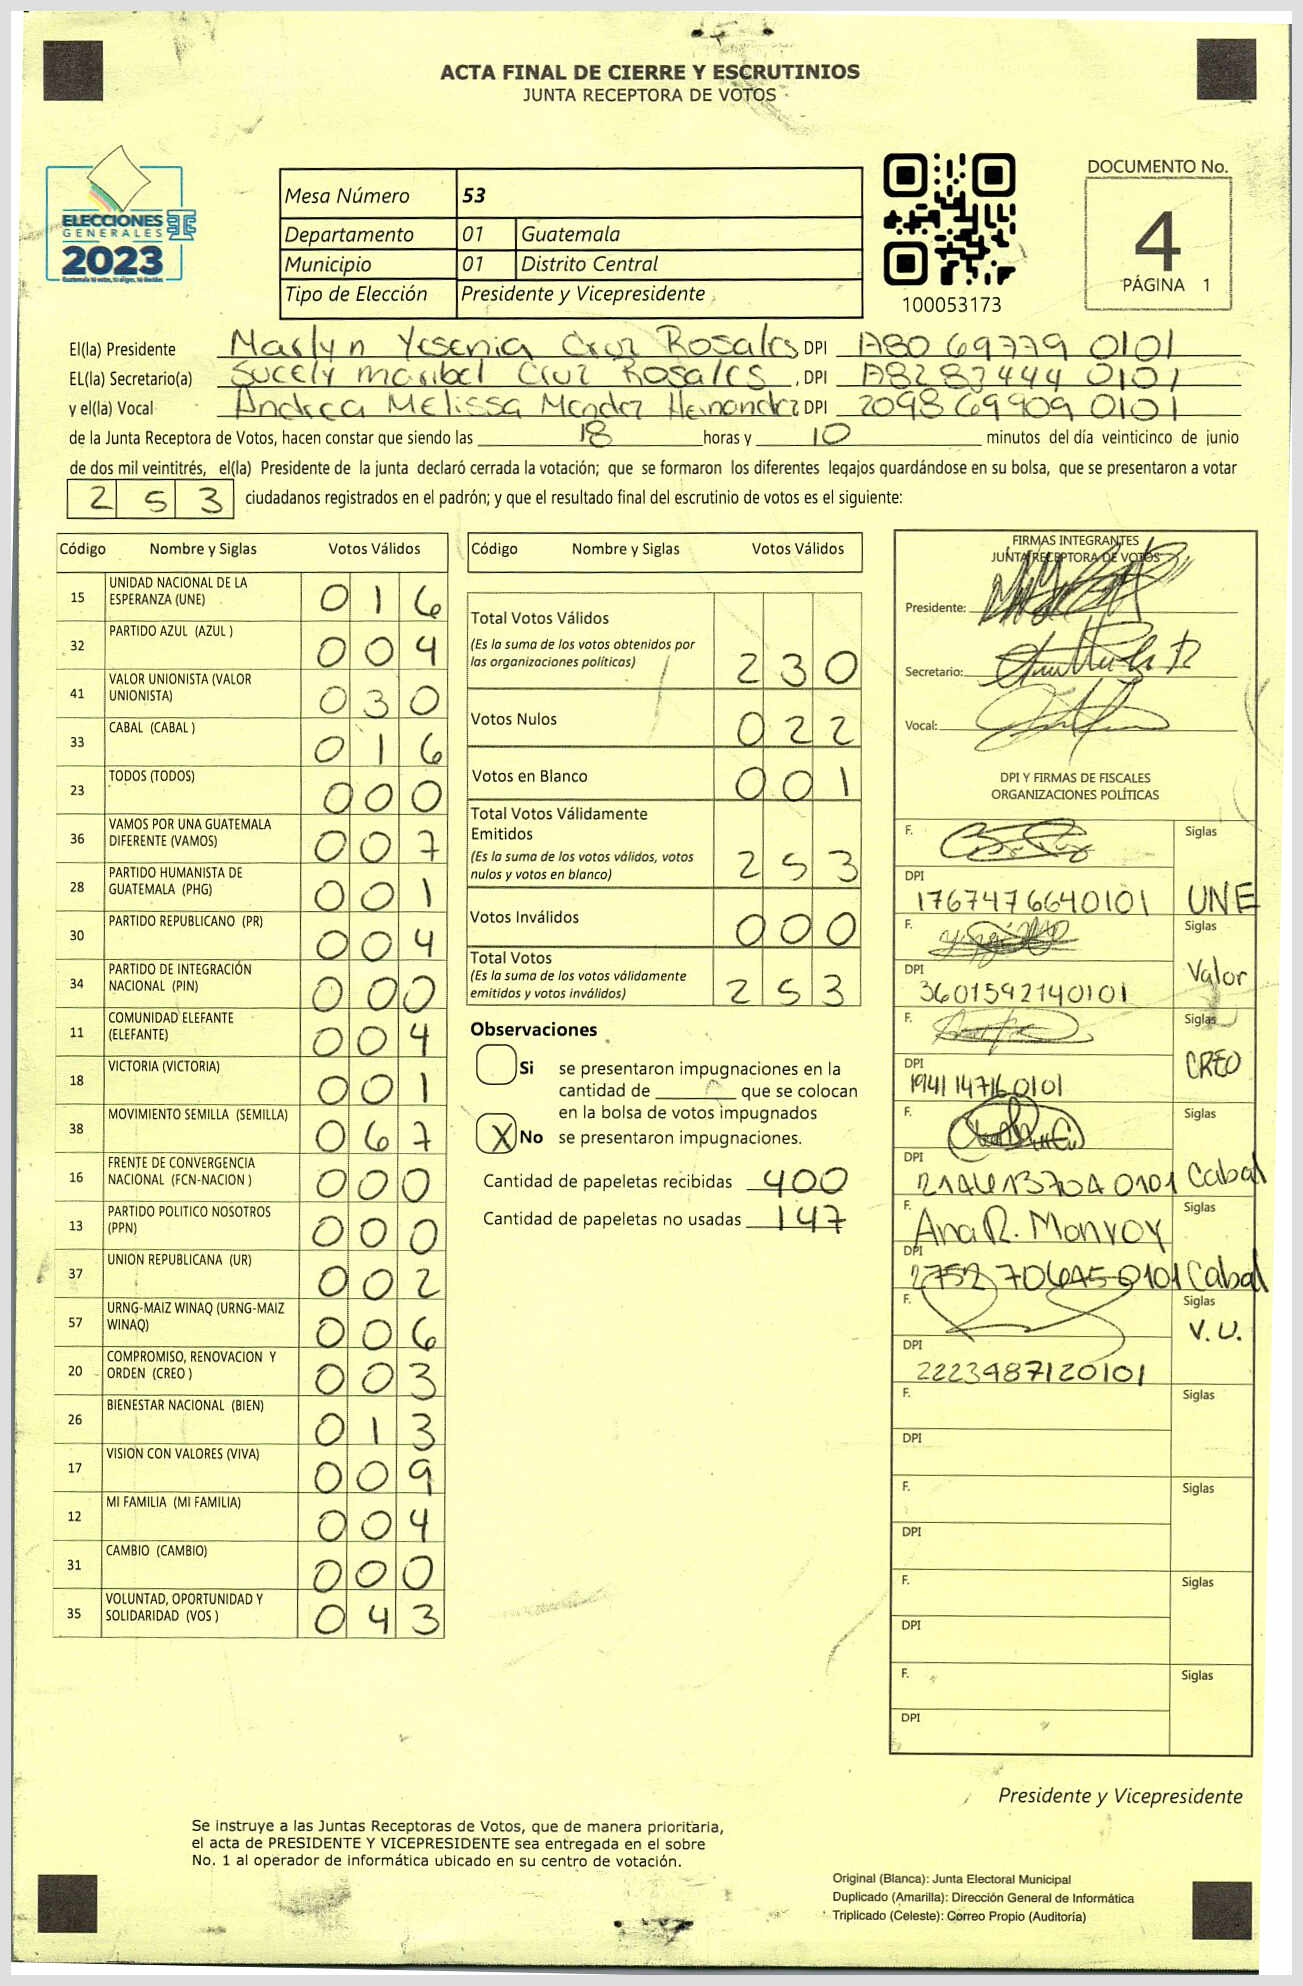 ACTA FINAL DE CIERRE Y ESCRUTINIOS
JUNTA RECEPTORA DE VOTOS
ELECCIONES
GENERALES
2023
Mesa Número 53
Departamento 01 Guatemala
Municipio 01 Distrito Central
Tipo de Elección Presidente y Vicepresidente
100053173
DOCUMENTO No.
4
PÁGINA 1
El(la) Presidente Marlyn Yesenia Cruz Rosales DPI 1780 69779 0101
EL(la) Secretario(a) Sucely maribel Cruz Rosales , DPI 0101
y el(la) Vocal Andrea Melissa Mendez Hernandez DPI 2098 69909 0101
de la Junta Receptora de Votos, hacen constar que siendo las 18 horas y 10 minutos del día veinticinco de junio
de dos mil veintitrés, el(la) Presidente de la junta declaró cerrada la votación; que se formaron los diferentes legajos guardándose en su bolsa, que se presentaron a votar
2 5 3 ciudadanos registrados en el padrón; y que el resultado final del escrutinio de votos es el siguiente:
Código Nombre y Siglas Votos Válidos
15 UNIDAD NACIONAL DE LA ESPERANZA (UNE) 0 1 6
32 PARTIDO AZUL (AZUL ) 0 0 4
41 VALOR UNIONISTA (VALOR UNIONISTA) 0 3 0
33 CABAL (CABAL ) 0 1 6
23 TODOS (TODOS) 0 0 0
36 VAMOS POR UNA GUATEMALA DIFERENTE (VAMOS) 0 0 7
28 PARTIDO HUMANISTA DE GUATEMALA (PHG) 0 0 1
30 PARTIDO REPUBLICANO (PR) 0 0 4
34 PARTIDO DE INTEGRACIÓN NACIONAL (PIN) 0 0 0
11 COMUNIDAD ELEFANTE (ELEFANTE) 0 0 4
18 VICTORIA (VICTORIA) 0 0 1
38 MOVIMIENTO SEMILLA (SEMILLA) 0 6 7
16 FRENTE DE CONVERGENCIA NACIONAL (FCN-NACION ) 0 0 0
13 PARTIDO POLITICO NOSOTROS (PPN) 0 0 0
37 UNION REPUBLICANA (UR) 0 0 2
57 URNG-MAIZ WINAQ (URNG-MAIZ WINAQ) 0 0 6
20 COMPROMISO, RENOVACION Y ORDEN (CREO ) 0 0 3
26 BIENESTAR NACIONAL (BIEN) 0 1 3
17 VISION CON VALORES (VIVA) 0 0 9
12 MI FAMILIA (MI FAMILIA) 0 0 4
31 CAMBIO (CAMBIO) 0 0 0
35 VOLUNTAD, OPORTUNIDAD Y SOLIDARIDAD (VOS ) 0 4 3
Código Nombre y Siglas Votos Válidos
Total Votos Válidos
(Es la suma de los votos obtenidos por
las organizaciones políticas) 2 3 0
Votos Nulos 0 2 2
Votos en Blanco 0 0 1
Total Votos Válidamente
Emitidos
(Es la suma de los votos válidos, votos
nulos y votos en blanco) 2 5 3
Votos Inválidos 0 0 0
Total Votos
(Es la suma de los votos válidamente
emitidos y votos inválidos) 2 5 3
Observaciones
Si se presentaron impugnaciones en la
cantidad de que se colocan
en la bolsa de votos impugnados
X No se presentaron impugnaciones.
Cantidad de papeletas recibidas 400
Cantidad de papeletas no usadas 147
FIRMAS INTEGRANTES
JUNTA RECEPTORA DE VOTOS
Presidente:
Secretario:
Vocal:
DPI Y FIRMAS DE FISCALES
ORGANIZACIONES POLÍTICAS
F. Siglas
DPI 1767476640101 UNE
F. Siglas
DPI 3601592140101 Valor
F. Siglas
DPI 1941147160101 CREO
F. Siglas
DPI 0101 Cabal
F. Ana R. Monroy Siglas
DPI 2752 70645 0101 Cabal
F. Siglas
DPI 2223487120101 V.U.
F. Siglas
DPI
F. Siglas
DPI
F. Siglas
DPI
F. Siglas
DPI
Presidente y Vicepresidente
Se instruye a las Juntas Receptoras de Votos, que de manera prioritaria,
el acta de PRESIDENTE Y VICEPRESIDENTE sea entregada en el sobre
No. 1 al operador de informática ubicado en su centro de votación.
Original (Blanca): Junta Electoral Municipal
Duplicado (Amarilla): Dirección General de Informática
Triplicado (Celeste): Correo Propio (Auditoría)